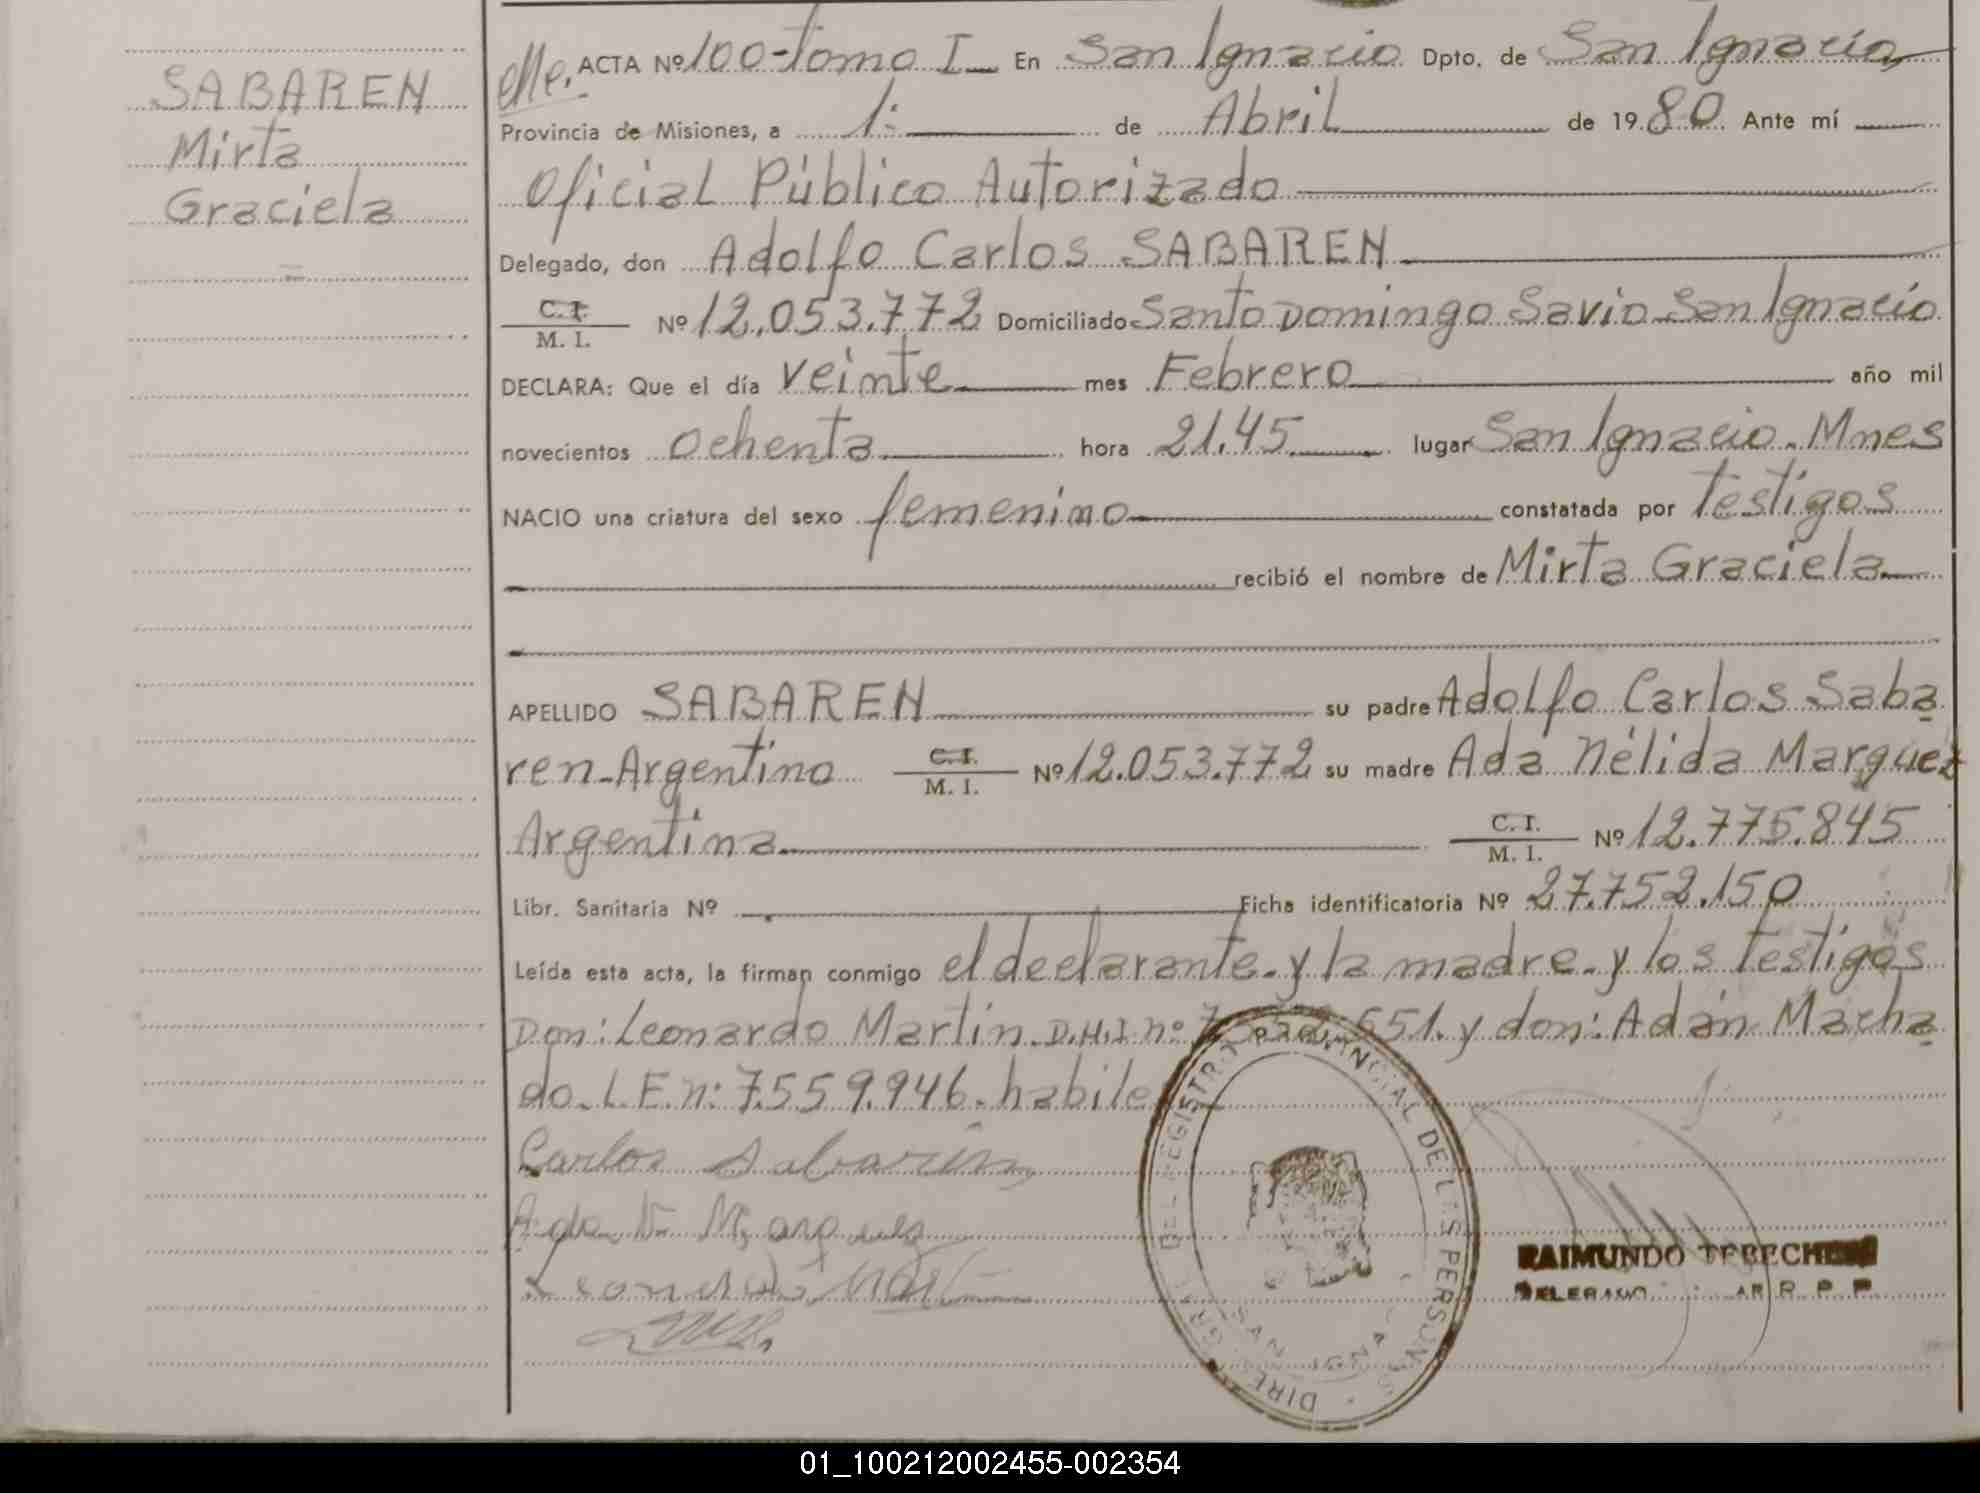 SABAREN
Mirta
Graciela
=
ACTA Nº 100-tomo I En San Ignacio Dpto. de San Ignacio
Provincia de Misiones, a 1: de Abril de 1980 Ante mí
Oficial Público Autorizado
Delegado, don Adolfo Carlos SABAREN
C. I.
M. I. Nº 12.053.772 Domiciliado Santo Domingo Savio San Ignacio
DECLARA: Que el día veinte mes Febrero año mil
novecientos ochenta hora 21.45 lugar San Ignacio. Mnes
NACIO una criatura del sexo femenino constatada por testigos
recibió el nombre de Mirta Graciela
APELLIDO SABAREN su padre Adolfo Carlos Saba
ren-Argentino C. I. M. I. Nº 12.053.772 su madre Ada Nélida Marquez
Argentina C. I. M. I. Nº 12.775.845
Libr. Sanitaria Nº Ficha identificatoria Nº 27.752.150
Leída esta acta, la firman conmigo el declarante-y la madre-y los testigos
Don: Leonardo Martin. D.N.I nº 651. y don: Adán Macha
do. L.E.n: 7.559.946. habiles
Carlos Sabarin
Ada N Marquez
Leonardo Martin
DIRECCION DEL REGISTRO PROVINCIAL DE LAS PERSONAS
SAN IGNACIO
RAIMUNDO
01_100212002455-002354